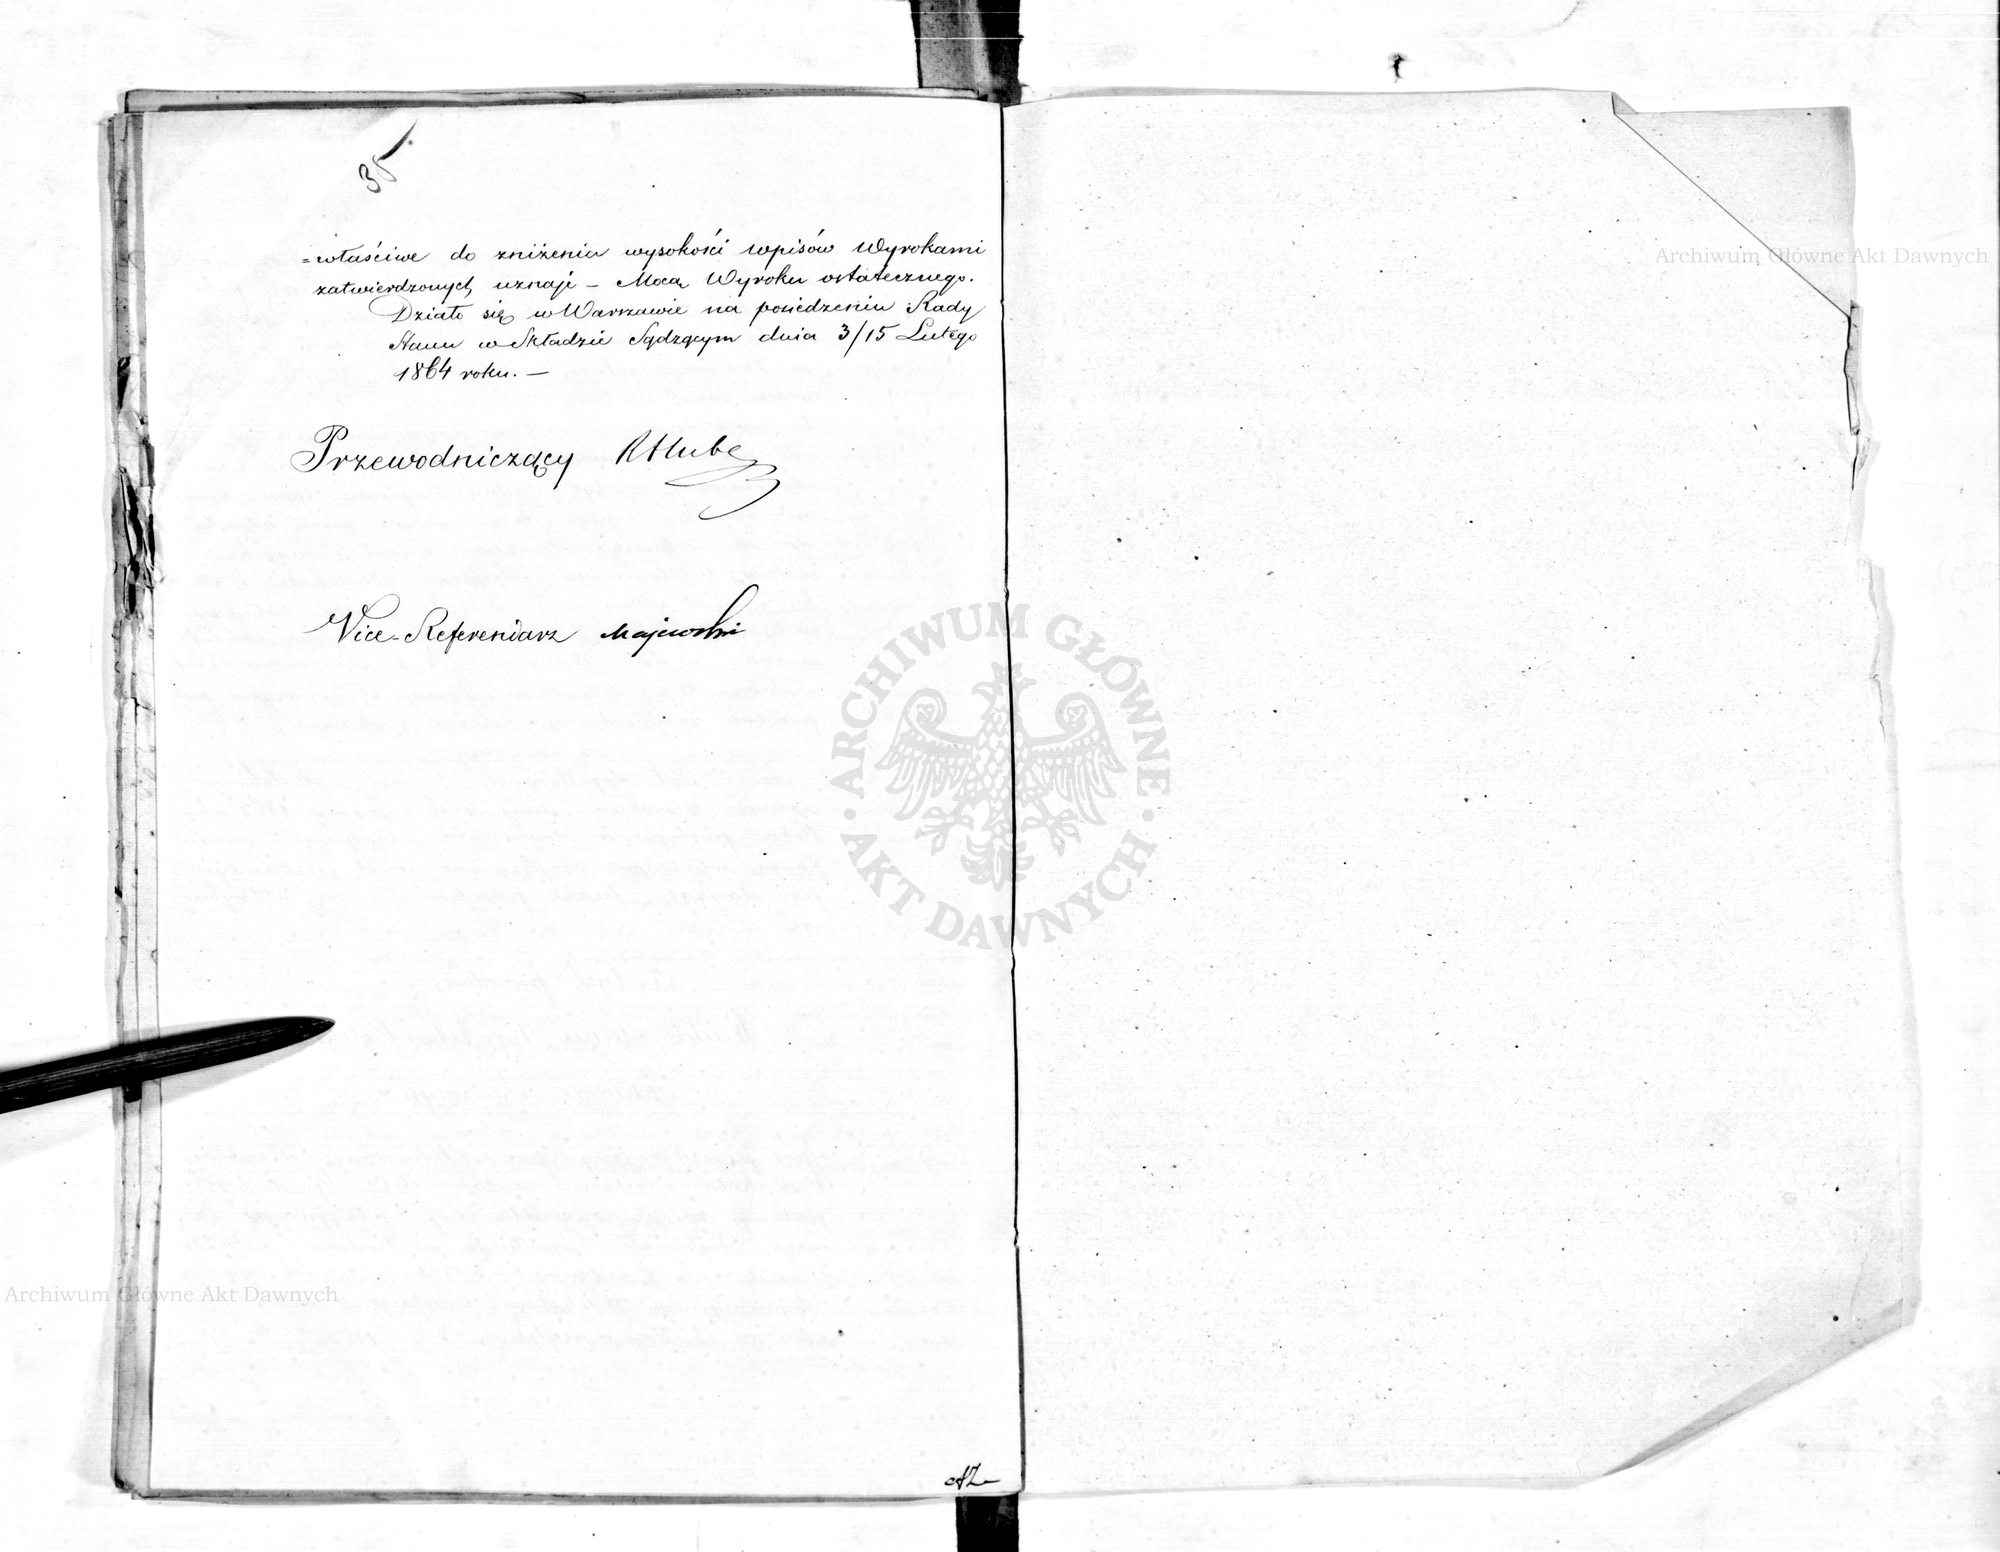 35
=właściwe do zniżenia wysokości wpisów Wyrokami
zatwierdzonych uznaje – Mocą Wyroku ostatecznego.
Działo się w Warszawie na posiedzeniu Rady
Stanu w Składzie Sądzącym dnia 3/15 Lutego
1864 roku. —
Przewodniczący RHube
Vice-Referendarz Majewski
ARCHIWUM GŁÓWNE · AKT DAWNYCH ·
Archiwum Główne Akt Dawnych
Archiwum Główne Akt Dawnych